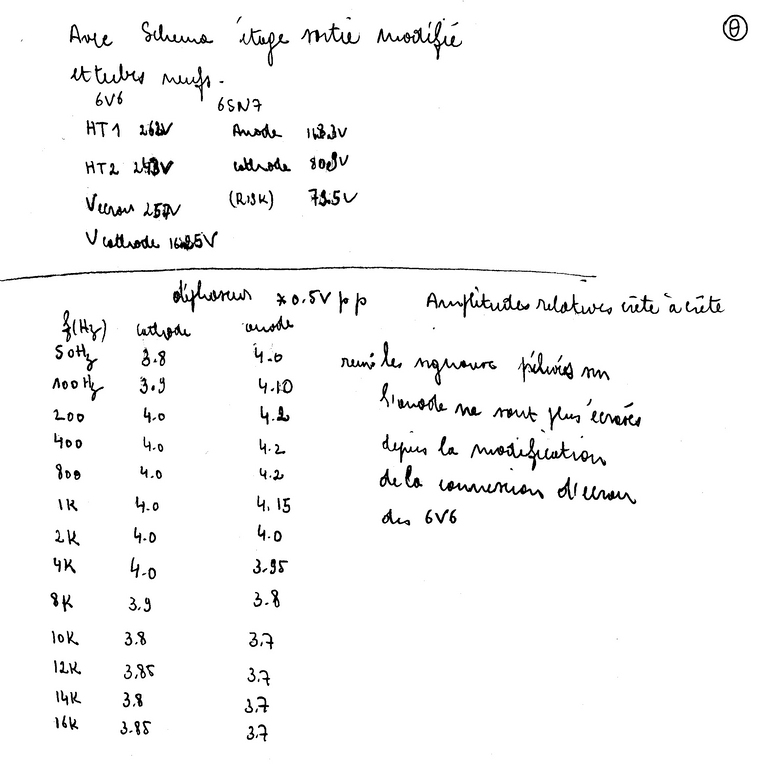 Avec Schema étage sortie modifié
et tubes neufs.
6V6 6SN7
HT1 V Anode V
HT2 V cathode V
Vecran V (R15K) V
V cathode V
déphaseur x 0.5V pp Amplitudes relatives crête à crête
f(Hz) cathode anode
50Hz 3.8 4.0
100Hz 3.9 4.10
200 4.0 4.2
400 4.0 4.2
800 4.0 4.2
1K 4.0 4.15
2K 4.0 4.0
4K 4.0 3.95
8K 3.9 3.8
10K 3.8 3.7
12K 3.85 3.7
14K 3.8 3.7
16K 3.85 3.7
les signaux sur
l'anode ne sont plus écrasés
depuis la modification
de la connexion d'écran
des 6V6